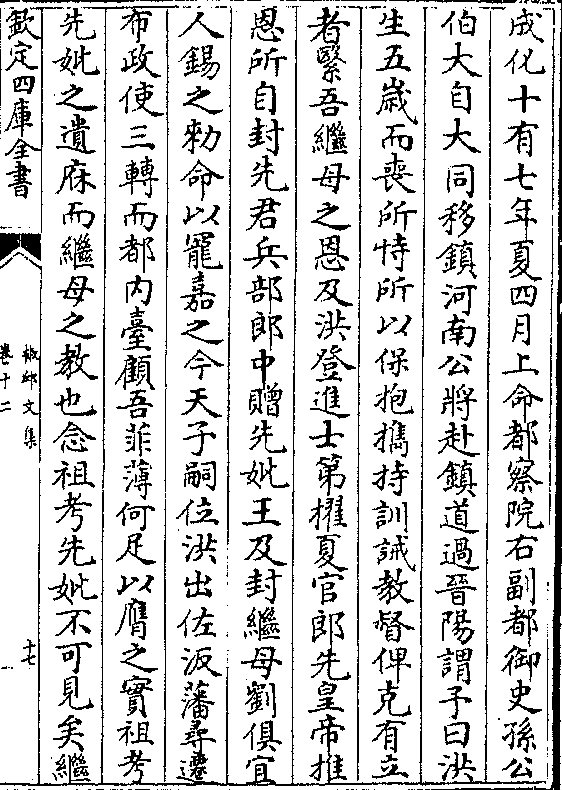 成化十有七年夏四月上命都察院右副都御史孫公
伯大自大同移鎮河南公將赴鎮道過晉陽謂予曰洪
生五歲而喪所恃所以保抱攜持訓誡教督俾克有立
者繄吾繼母之恩及洪登進士第擢夏官郎先皇帝推
恩所自封先君兵部郎中贈先妣王及封繼母劉俱宜
人錫之勑命以寵嘉之今天子嗣位洪出佐滇藩尋遷
布政使三轉而都内臺顧吾菲薄何足以膺之實祖考
先妣之遺庥而繼母之教也念祖考先妣不可見矣繼
欽定四庫全書
椒邱文集
卷十二
十七